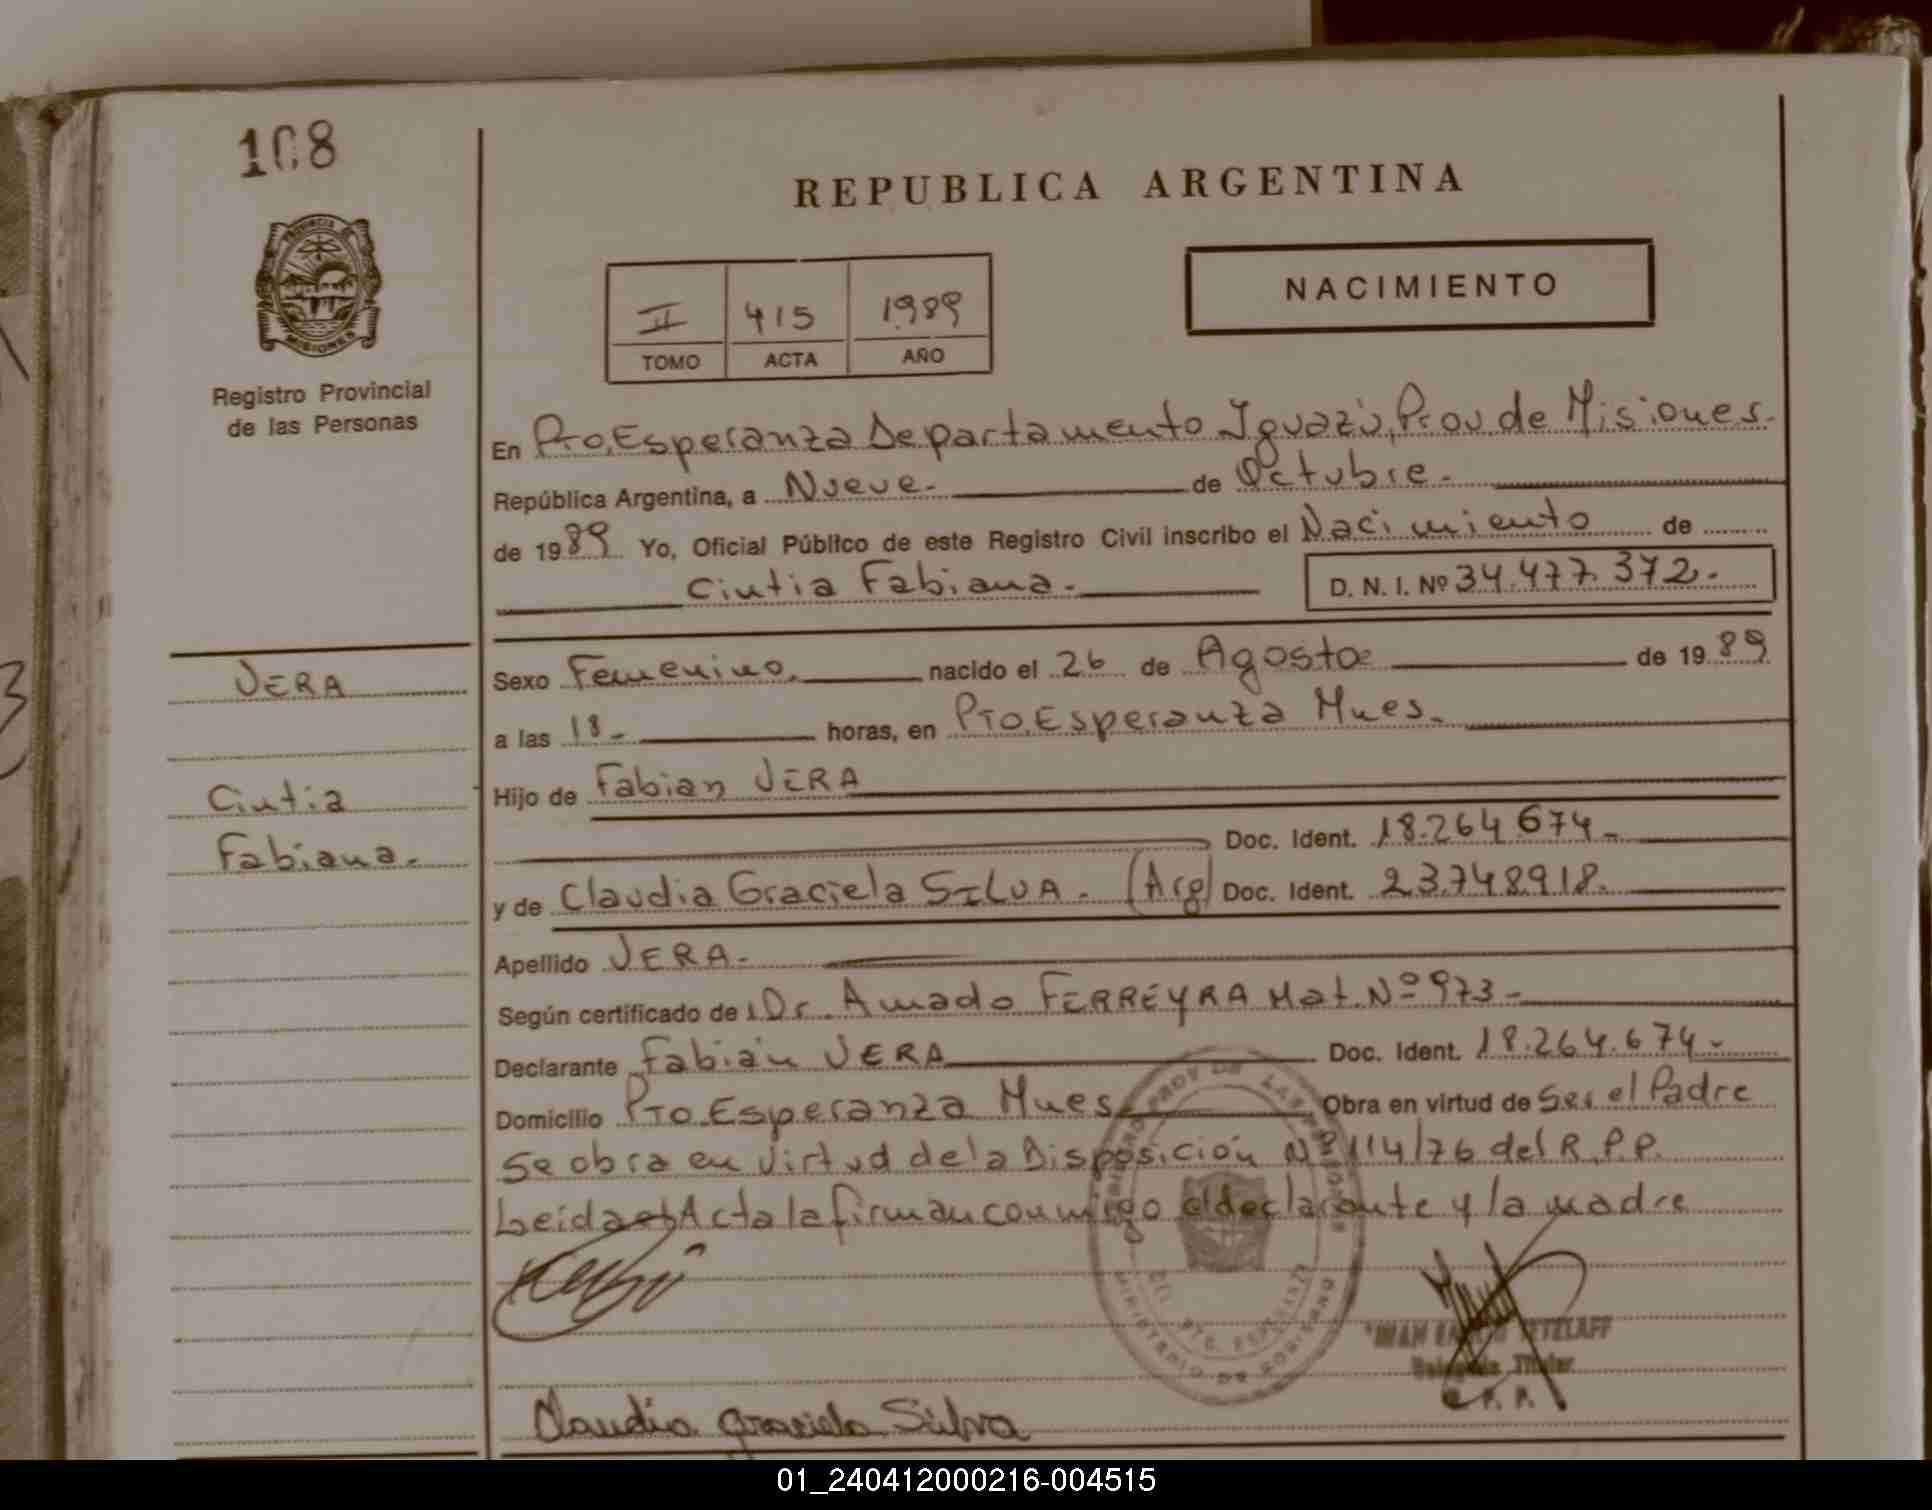 108
PROVINCIA DE
MISIONES
Registro Provincial
de las Personas
REPUBLICA ARGENTINA
II 415 1989
TOMO ACTA AÑO
NACIMIENTO
En Pto. Esperanza Departamento Iguazú, Prov de Misiones.
República Argentina, a Nueve. de Octubre.
de 1989 Yo, Oficial Público de este Registro Civil inscribo el Nacimiento de
Cintia Fabiana. D. N. I. Nº 34.477.372.
VERA
Cintia
Fabiana.
Sexo Femenino. nacido el 26 de Agosto de 1989
a las 18- horas, en Pto. Esperanza Mnes.
Hijo de Fabian VERA
Doc. Ident. 18.264.674-
y de Claudia Graciela SILVA. (Arg) Doc. Ident. 23.748.918.
Apellido VERA.
Según certificado de Dr. Amado FERREYRA Mat. Nº 973-
Declarante Fabián VERA Doc. Ident. 18.264.674-
Domicilio Pto. Esperanza Mnes Obra en virtud de Ser el Padre
Se obra en virtud de la Disposición Nº 114/76 del R.P.P.
Leida el Acta la firman conmigo el declarante y la madre
MINISTERIO DE GOBIERNO
PTO. ESPERANZA
Delegado Titular
R. P. P.
Claudia Graciela Silva
01_240412000216-004515